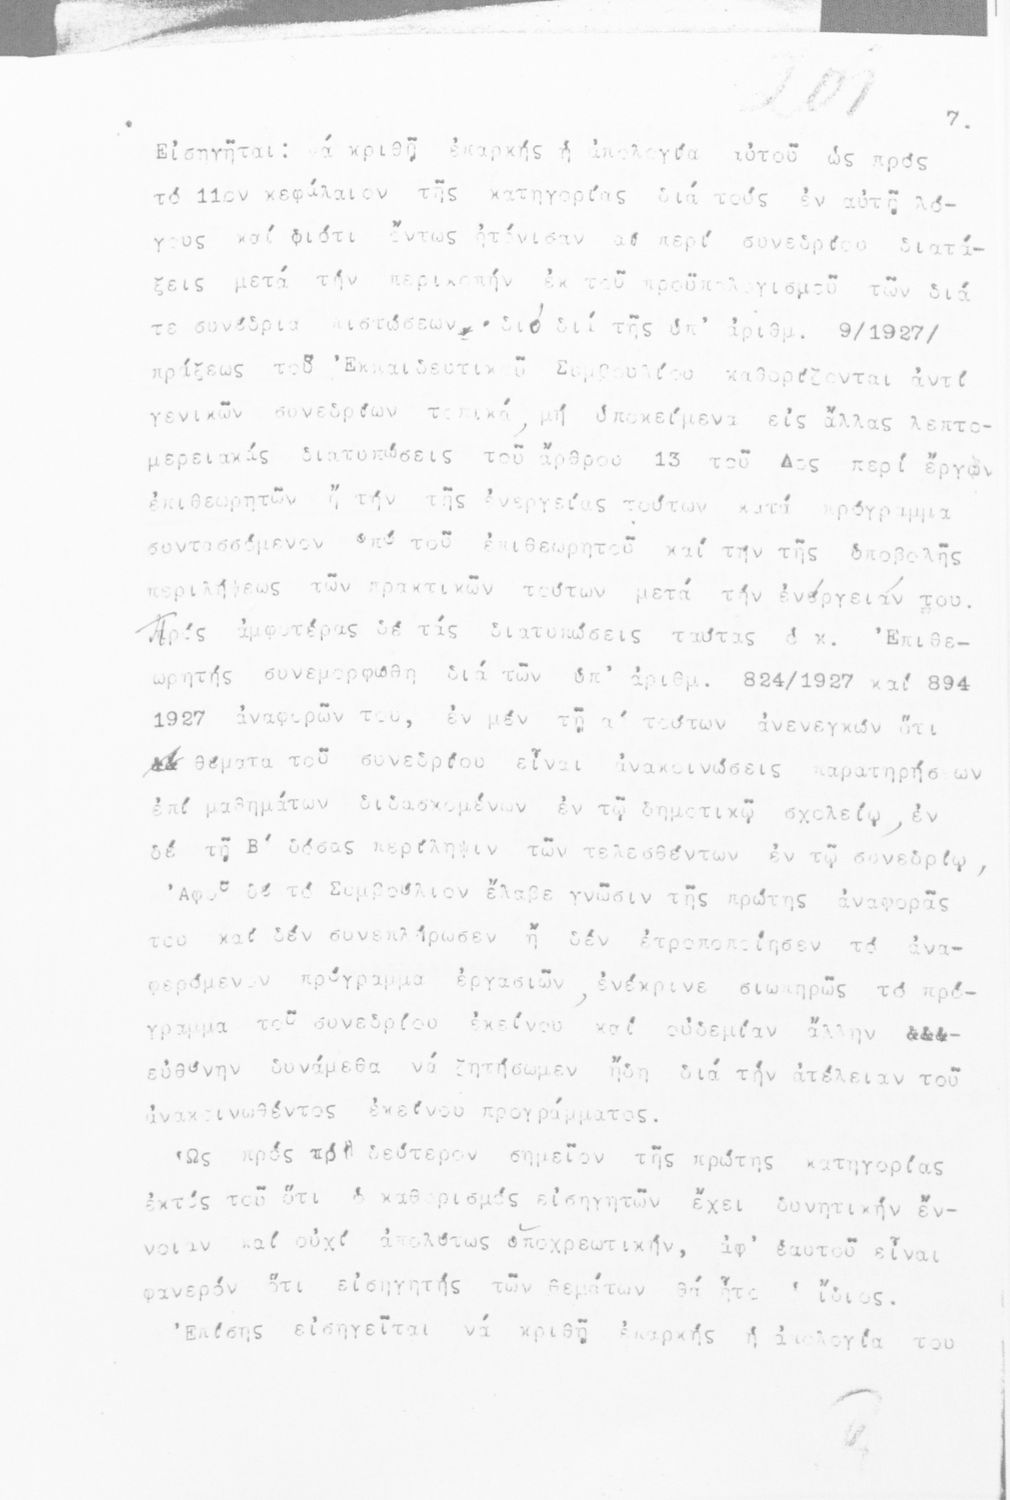 201
7.
Εἰσηγῆται: νά κριθῇ ἐπαρκής ἡ ἀπολογία αὐτοῦ ὡς πρός
τό 11ον κεφάλαιον τῆς κατηγορίας διά τούς ἐν αὐτῇ λό-
γους καί διότι ὄντως ἠτόνισαν αἱ περί συνεδρίου διατά-
ξεις μετά τήν περικοπήν ἐκ τοῦ προϋπολογισμοῦ τῶν διά
τε συνέδρια πιστώσεων, διό διά τῆς ὑπ' ἀριθμ. 9/1927/
πράξεως τοῦ Ἐκπαιδευτικοῦ Συμβουλίου καθορίζονται ἀντί
γενικῶν συνεδρίων τοπικά, μή ὑποκείμενα εἰς ἄλλας λεπτο-
μερειακάς διατυπώσεις τοῦ ἄρθρου 13 τοῦ Δος περί ἔργων
ἐπιθεωρητῶν ἤ τήν τῆς ἐνεργείας τούτων κατά πρόγραμμα
συντασσόμενον ὑπό τοῦ ἐπιθεωρητοῦ καί τήν τῆς ὑποβολῆς
περιλήψεως τῶν πρακτικῶν τούτων μετά τήν ἐνέργειάν του.
Πρός ἀμφοτέρας δέ τάς διατυπώσεις ταύτας ὁ κ. Ἐπιθε-
ωρητής συνεμορφώθη διά τῶν ὑπ' ἀριθμ. 824/1927 καί 894
1927 ἀναφορῶν του, ἐν μέν τῇ α' τούτων ἀνενεγκών ὅτι
θέματα τοῦ συνεδρίου εἶναι ἀνακοινώσεις παρατηρήσεων
ἐπί μαθημάτων διδασκομένων ἐν τῷ δημοτικῷ σχολείῳ, ἐν
δέ τῇ Β' δόσας περίληψιν τῶν τελεσθέντων ἐν τῷ συνεδρίῳ,
Ἀφοῦ δέ τό Συμβούλιον ἔλαβε γνῶσιν τῆς πρώτης ἀναφορᾶς
του καί δέν συνεπλήρωσεν ἤ δέν ἐτροποποίησεν τό ἀνα-
φερόμενον πρόγραμμα ἐργασιῶν, ἐνέκρινε σιωπηρῶς τό πρό-
γραμμα τοῦ συνεδρίου ἐκείνου καί οὐδεμίαν ἄλλην &&&-
εὐθύνην δυνάμεθα νά ζητήσωμεν ἤδη διά τήν ἀτέλειαν τοῦ
ἀνακοινωθέντος ἐκείνου προγράμματος.
Ὡς πρός τό δεύτερον σημεῖον τῆς πρώτης κατηγορίας
ἐκτός τοῦ ὅτι ὁ καθορισμός εἰσηγητῶν ἔχει δυνητικήν ἔν-
νοιαν καί οὐχί ἀπολύτως ὑποχρεωτικήν, ἀφ' ἑαυτοῦ εἶναι
φανερόν ὅτι εἰσηγητής τῶν θεμάτων θά ἦτο ὁ ἴδιος.
Ἐπίσης εἰσηγεῖται νά κριθῇ ἐπαρκής ἡ ἀπολογία του